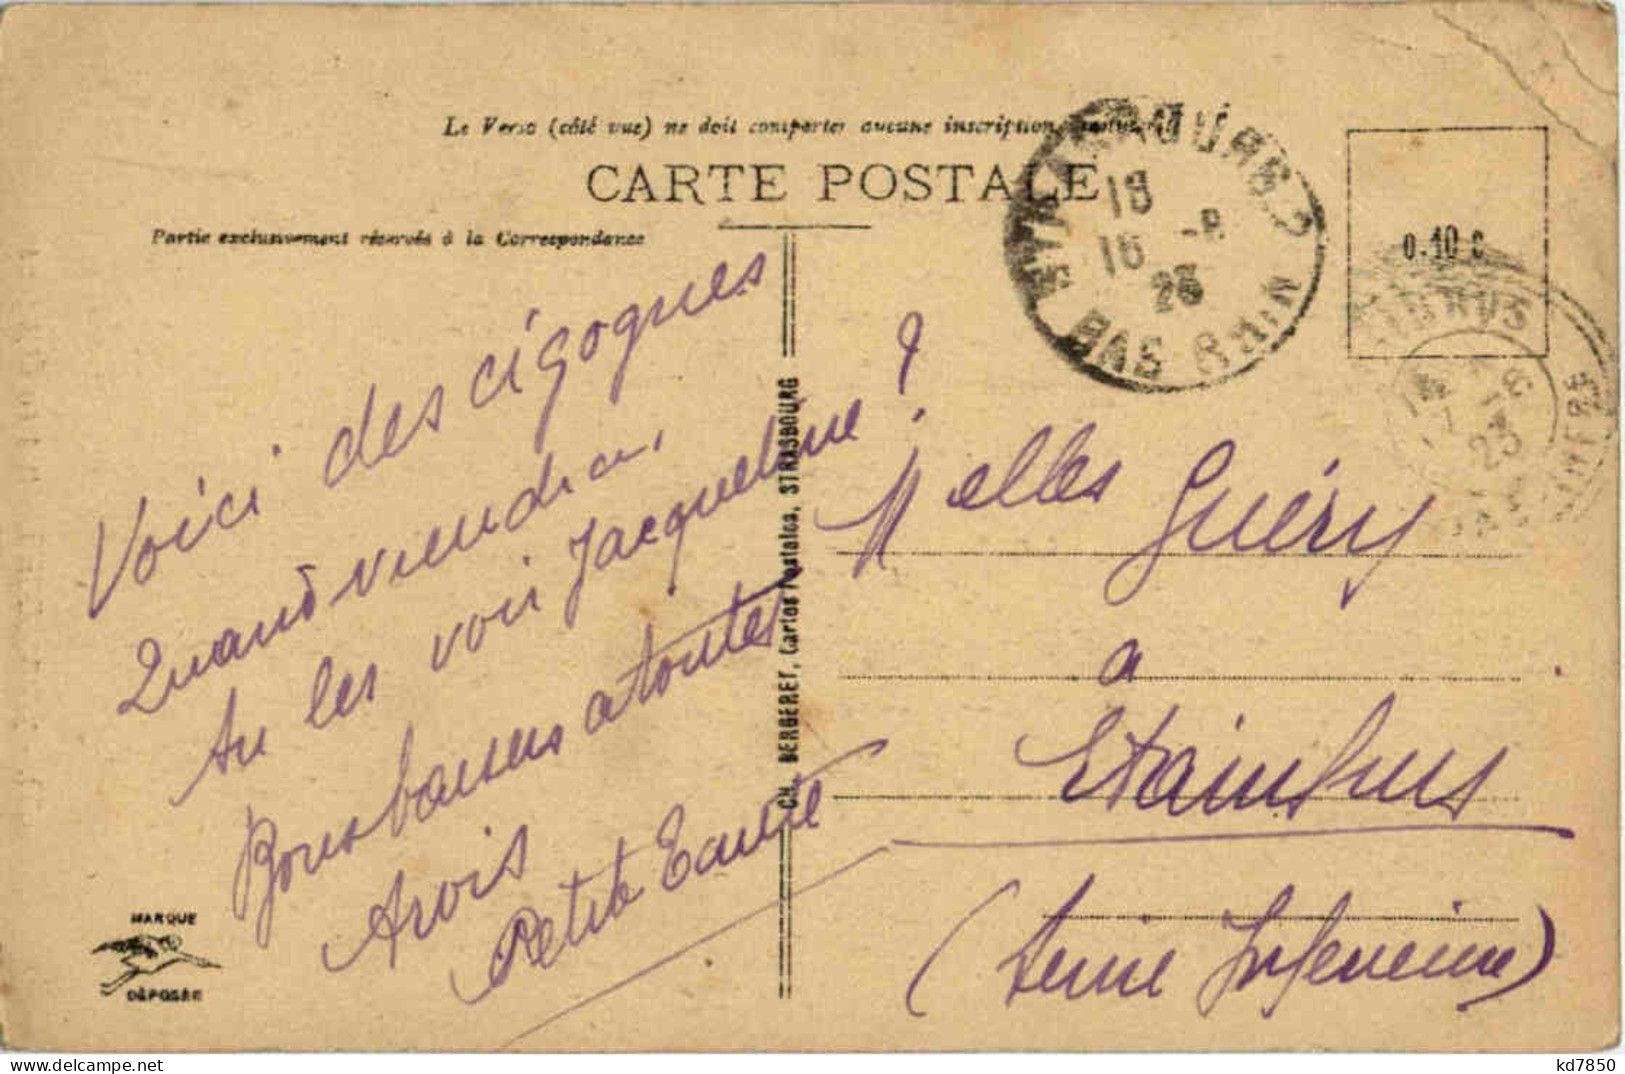 Le Verso (côté vue) ne doit comporter aucune inscription
CARTE POSTALE
Partie exclusivement réservée à la Correspondance
STRASBOURG 2
18
16 -8
23
BAS RHIN
0.10 c
Voici des cigognes
Quand viendra
tu les voir Jacqueline ?
Bons baisers a toutes
trois
Petite
CH. BERGERET, Cartes Postales, STRASBOURG
Melles Guéry
a
Etainhus
(Seine Inférieure)
MARQUE
DÉPOSÉE
kd7850